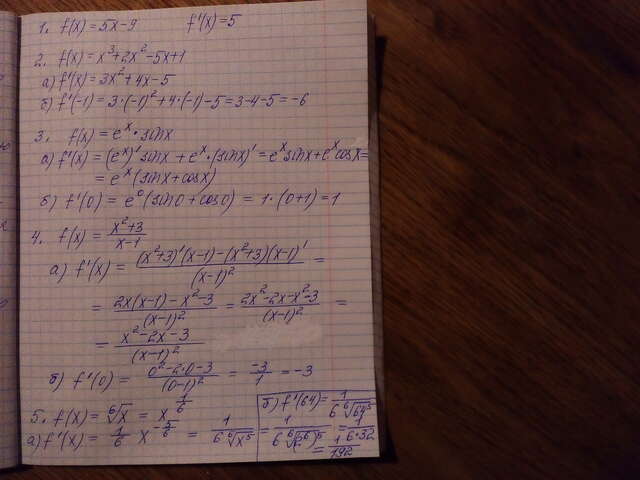 1. f(x) = 5x-9 f'(x) = 5
2. f(x) = x³+2x²-5x+1
а) f'(x) = 3x²+4x-5
б) f'(-1) = 3·(-1)²+4·(-1)-5 = 3-4-5 = -6
3. f(x) = eˣ·sinx
а) f'(x) = (eˣ)' sinx + eˣ·(sinx)' = eˣ sinx + eˣ cosx =
= eˣ(sinx+cosx)
б) f'(0) = e⁰(sin0+cos0) = 1·(0+1) = 1
4. f(x) = (x²+3)/(x-1)
а) f'(x) = ((x²+3)'(x-1)-(x²+3)(x-1)')/(x-1)² =
= (2x(x-1)-x²-3)/(x-1)² = (2x²-2x-x²-3)/(x-1)² =
= (x²-2x-3)/(x-1)²
б) f'(0) = (0²-2·0-3)/(0-1)² = -3/1 = -3
5. f(x) = ⁶√x = x^(1/6)
а) f'(x) = 1/6 x^(-5/6) = 1/(6·⁶√x⁵)
б) f'(64) = 1/(6 ⁶√64⁵) =
= 1/(6 ⁶√(2⁶)⁵) = 1/(6·32)
= 1/192